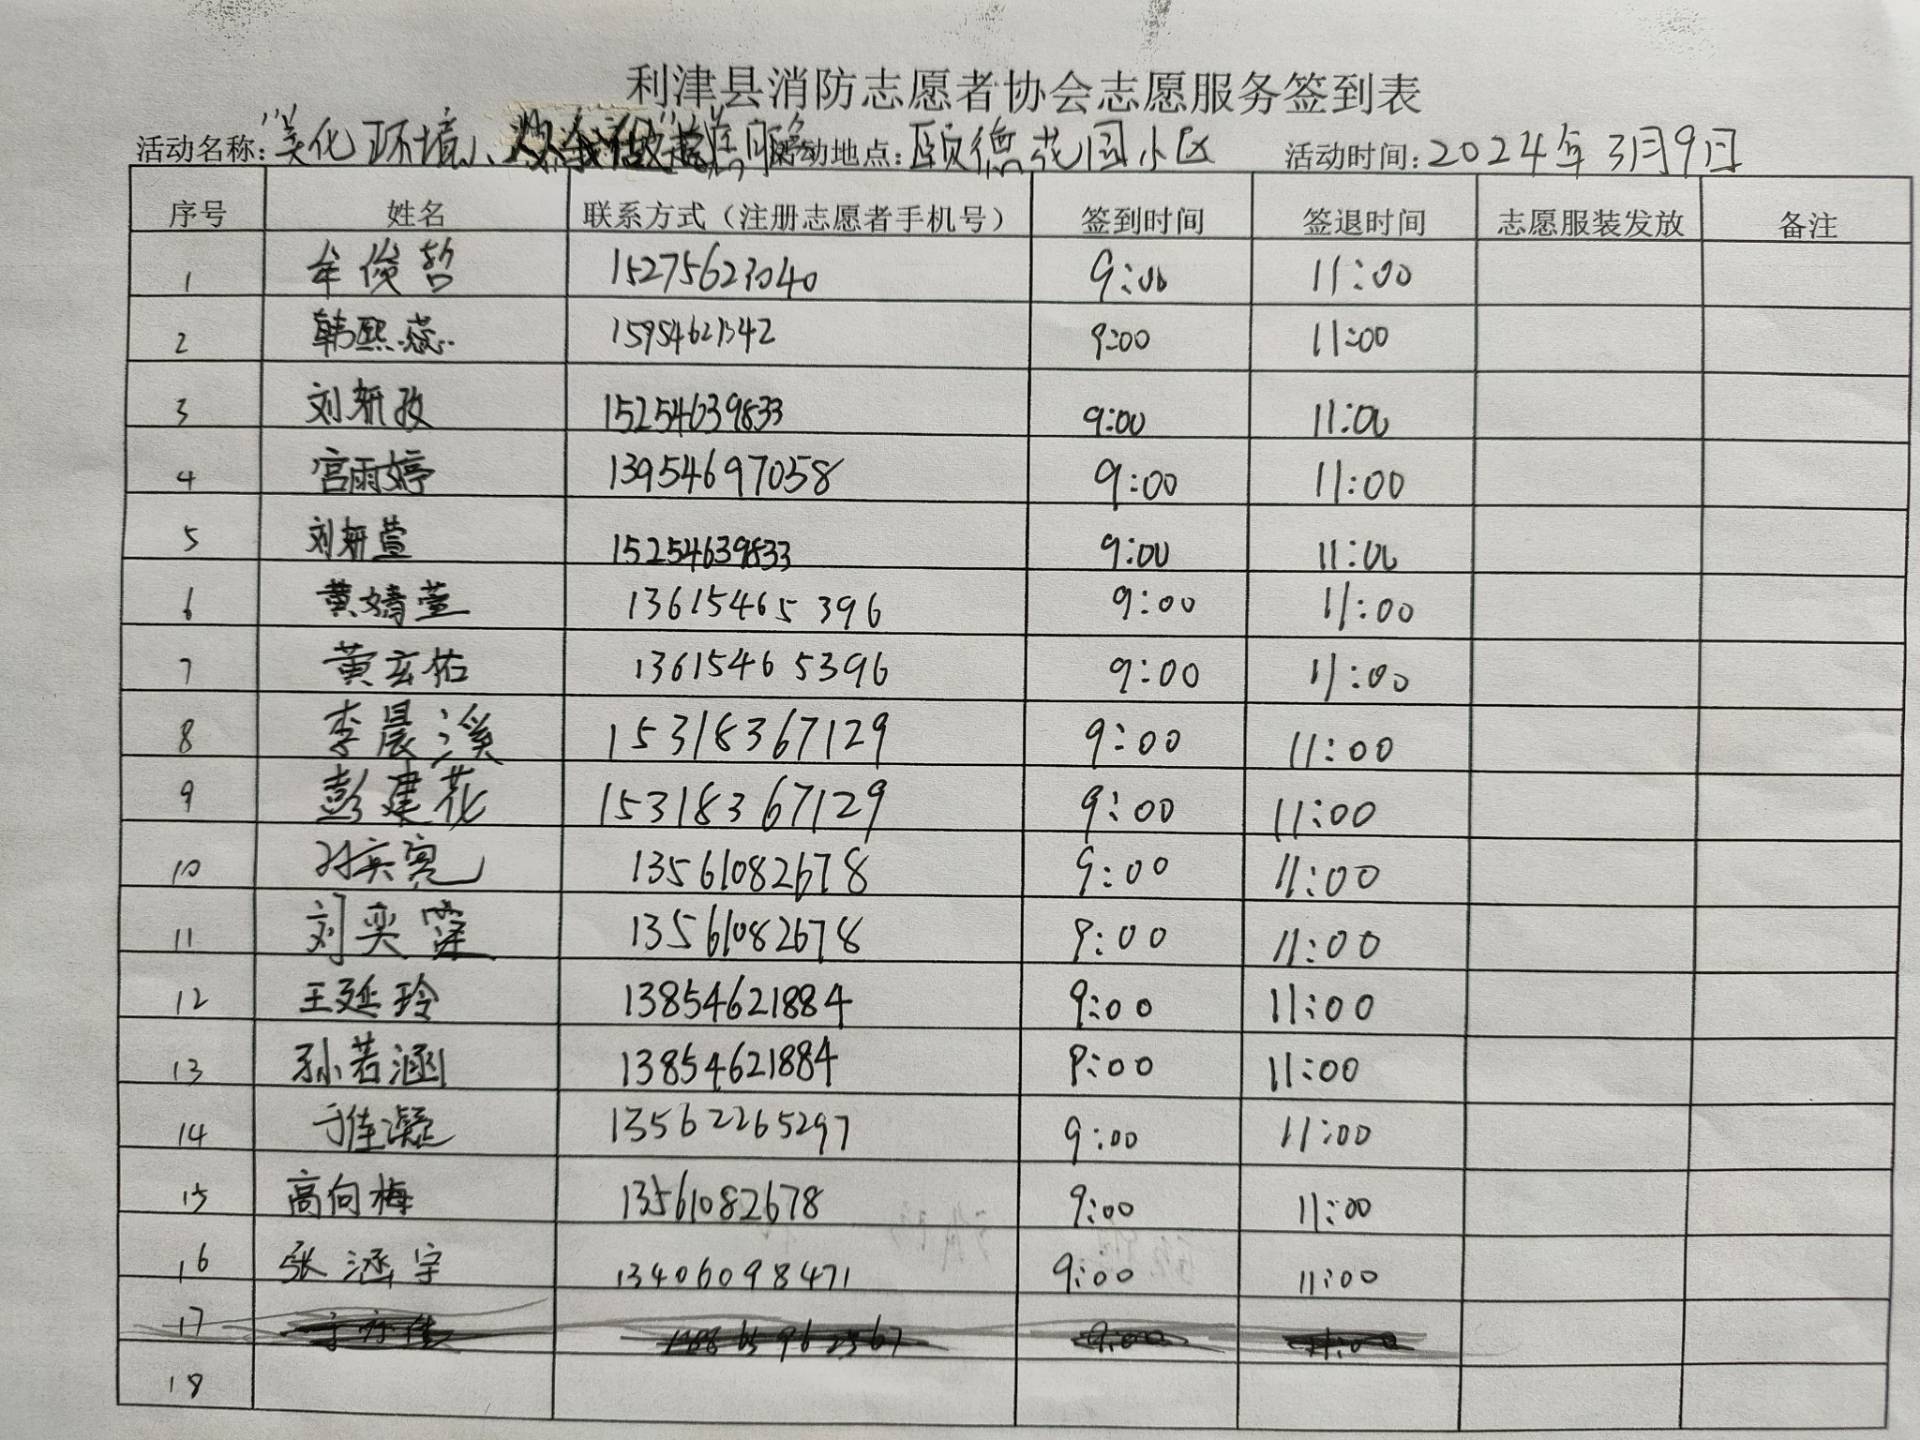 利津县消防志愿者协会志愿服务签到表
活动名称:"美化环境、 活动地点:颐德花园小区 活动时间:2024年3月9日
序号 姓名 联系方式（注册志愿者手机号） 签到时间 签退时间 志愿服装发放 备注
1 牟俊哲 15275623040 9:00 11:00
2 韩熙蕊 15954621342 9:00 11:00
3 刘妍孜 15254639833 9:00 11:00
4 宫雨婷 13954697058 9:00 11:00
5 刘妍萱 15254639833 9:00 11:00
6 黄婧萱 13615465396 9:00 11:00
7 黄玄佑 13615465396 9:00 11:00
8 李晨溪 15318367129 9:00 11:00
9 彭建花 15318367129 9:00 11:00
10 孙奕宽 13561082678 9:00 11:00
11 刘奕霏 13561082678 9:00 11:00
12 王延玲 13854621884 9:00 11:00
13 孙若涵 13854621884 9:00 11:00
14 于佳凝 13562265297 9:00 11:00
15 高向梅 13561082678 9:00 11:00
16 张涵宇 13406098471 9:00 11:00
17 9:00 11:00
18